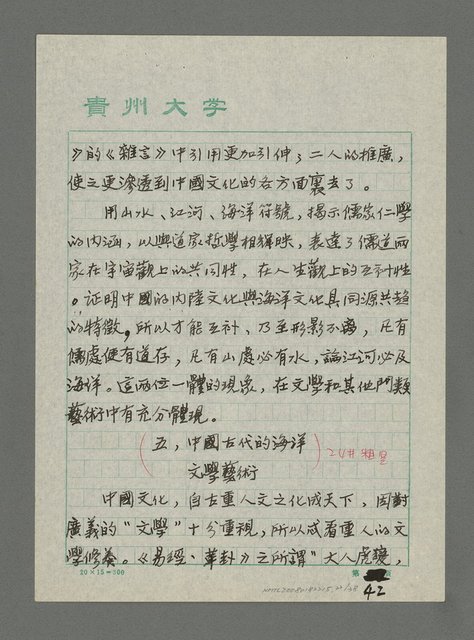 貴州大学
》的《雜言》中引用更加引伸；二人的推廣，
使之更滲透到中國文化的各方面裏去了。
用山水、江河、海洋符號，揭示儒家仁學
的内涵，以與道家哲學相輝映，表達了儒道兩
家在宇宙觀上的共同性，在人生觀上的互補性
。証明中國的内陸文化與海洋文化具同源共趋
的特徵，所以才能互补、乃至形影不离，凡有
儒處便有道存，凡有山處必有水，論江河必及
海洋。這兩位一體的現象，在文學和其他門類
藝術中有充分體現。
（五，中國古代的海洋
文學藝術）
24井粗黑
中國文化，自古重人文之化成天下，因對
廣義的"文學"十分重視，所以咸看重人的文
學修养。《易經·革卦》之所謂"大人虎變，
20×15=300
第
42